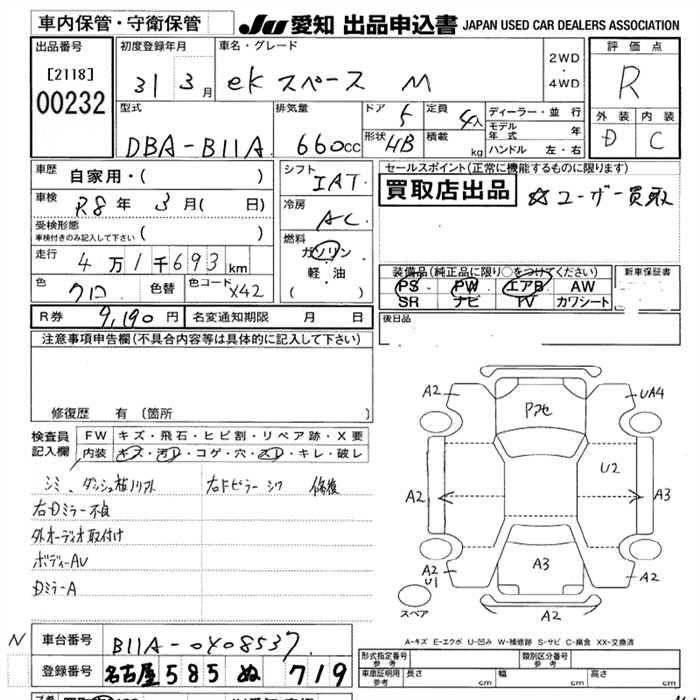 車内保管・守衛保管
JU 愛知 出品申込書 JAPAN USED CAR DEALERS ASSOCIATION
出品番号
[2118]
00232
初度登録年月
31 3 月
車名・グレード
ekスペース M
2WD
・
4WD
評価点
R
外装 内装
D C
型式
DBA-B11A
排気量
660cc
ドア
5
定員
4人
形状
HB
積載
kg
ディーラー・並行
モデル年式 年
ハンドル 左・右
車歴
自家用・( )
車検
R8年 3月( 日)
受検形態
車検付きのみ記入して下さい ( )
走行
4万1千693km
色
クロ
色替
色コード
X42
シフト
IAT
冷房
AC
燃料
ガソリン
軽・油
( )
セールスポイント(正常に機能するものに限ります)
買取店出品
ユーザー買取
装備品(純正品に限り〇をつけてください)
PS PW エアB AW
SR ナビ TV カワシート
新車保証書
後日品
R券 9,190円
名変通知期限 月 日
注意事項申告欄(不具合内容等は具体的に記入して下さい)
修復歴 有 [箇所
検査員
記入欄
FW キズ・飛石・ヒビ割・リペア跡・X要
内装 キズ・汚レ・コゲ・穴・スレ・キレ・破レ
シミ、ダッシュ
右Fピラー シワ 修復
右Dミラー不良
外オーディオ取付け
ボディーAU
Dミラー A
A2
UA4
Pアセ
U2
A2
A3
A3
A2
U1
A2
A2
スペア
A-キズ E-エクボ U-凹み W-補修跡 S-サビ C-腐食 XX-交換済
N
車台番号
B11A-0408537
登録番号
名古屋 585 ぬ 719
形式指定番号
参考
類別区分番号
参考
車庫証明用
参考
長さ cm
幅 cm
高さ cm